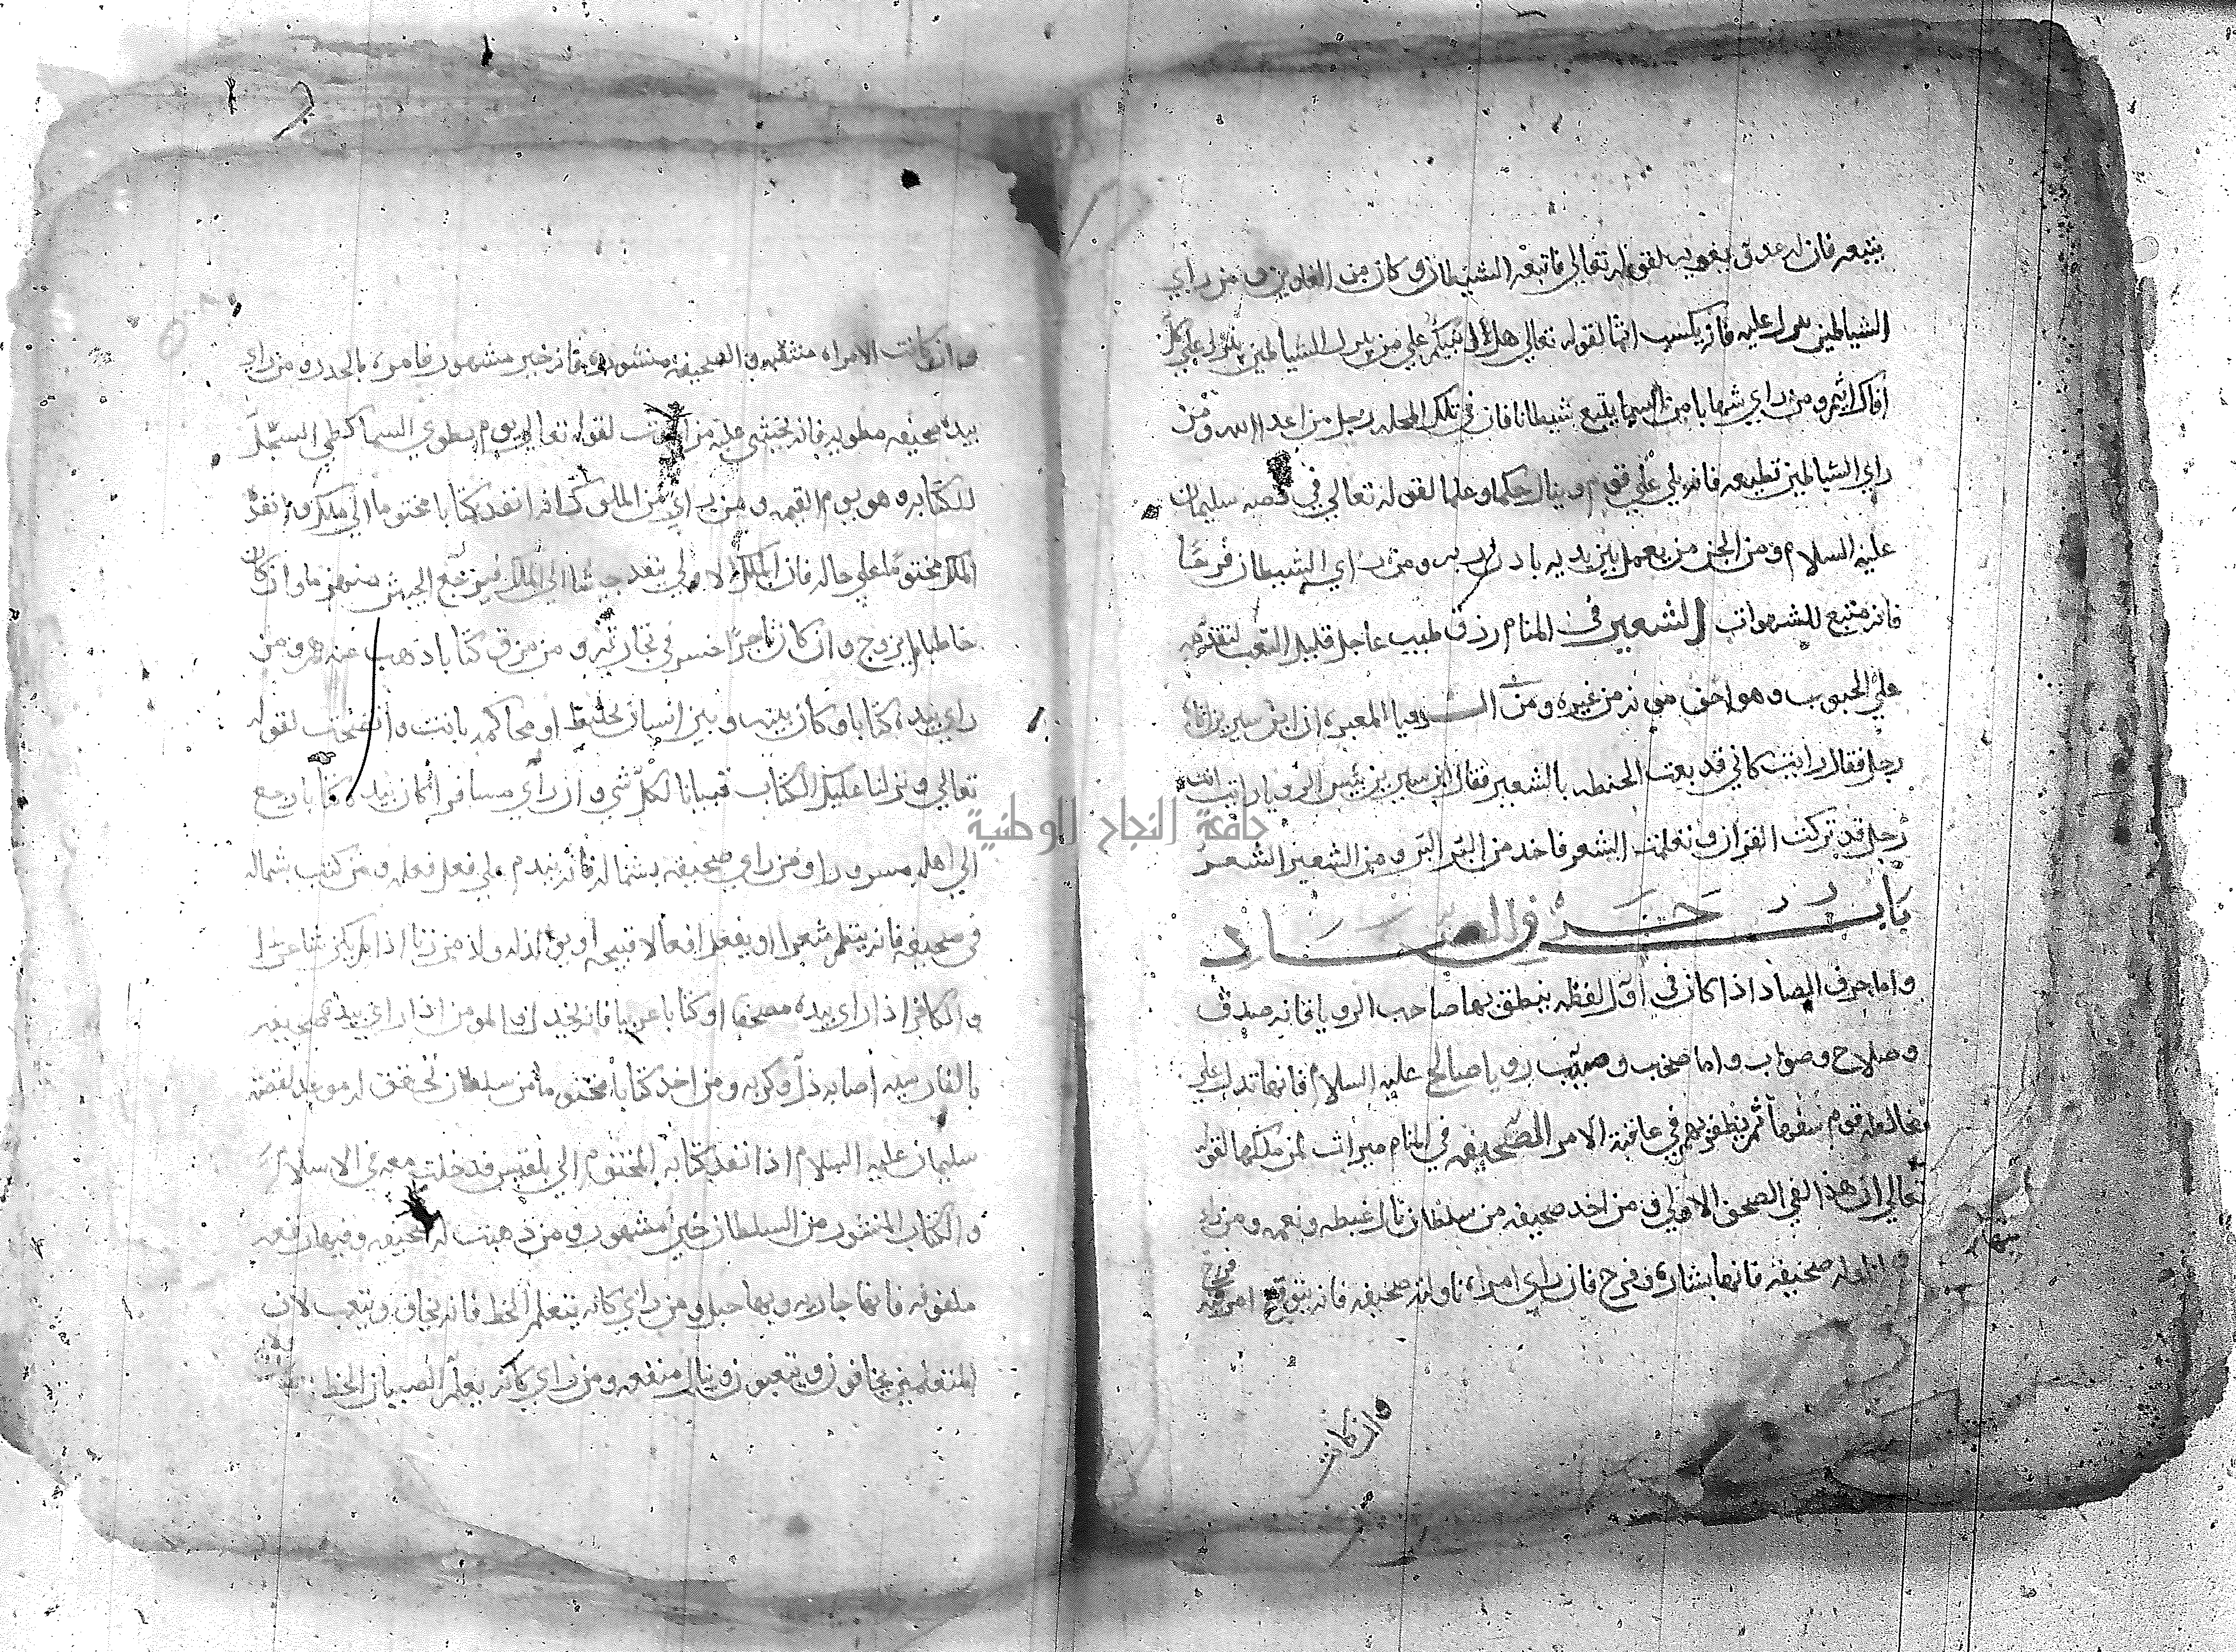 يتبعه فان له عدو يغويه لقوله تعالي فاتبعه الشيطان وكان من الغاوين ومن راي
الشياطين تنزل عليه فانه يكسب اثما لقوله تعالي هل انبيكم علي من تنزل الشياطين تنزل علي كل
افاك اثيم ومن راي شهابا من السما يتبع شيطانا فان في تلك المحله رجل من اعدا الله ومن
راي الشياطين تطيعه فانه يلي علي قوم وينال حكما وعلما لقوله تعالي في قصه سليمان
عليه السلام ومن الجن من يعمل بين يديه باذن ربه ومن راي الشيطان فرحا
فانه متبع للشهوات الشعير في المنام رزق طيب عاجل قليل التعب لتقدمه
علي الحبوب وهو اخف مونه من غيره ومن الرويا المعبره ان ابن سيرين اتاه
رجل فقال رايت كاني قد بعت الحنطه بالشعير فقال ابن سيرين بيس الرويا رايت انت
رجل قد تركت القران وتعلمت الشعر فاخذ من البر البر ومن الشعير الشعر
باب حرف الصاد
واما حرف الصاد اذا كان في اول لفظه ينطق بها صاحب الرويا فانه صدق
وصلاح وصواب واما صخب وصبب رويا صالح عليه السلام فانها تدل علي
مخالطه قوم سفها ثم يظفر بهم في عاقبة الامر الصحيفه في المنام ميراث لمن ملكها لقوله
تعالي ان هذا لفي الصحف الاولي ومن اخذ صحيفه من سلطان نال غبطه ونعمه ومن راي
انه ناوله صحيفه فانها بشاره وفرح فان راي امراه ناولته صحيفه فانه يتوقع امر فيه فرح
وان كانت
وان كانت الامراه متنقبه والصحيفه منشوره فانه خبر مشهور فامره بالحذر ومن راي
بيده صحيفه مطويه فانه يخشي عليه من الموت لقوله تعالي يوم نطوي السما كطي السجل
للكتاب وهو يوم القيمه ومن راي من الملوك كانه انفذ كتابا مختوما الي ملك وانفذ
الملك مختوما علي حاله فان الملك الاولي ينفد جيشا الي الملك فيرجع الجيش منهزما وان كان
خاطبا لم يزوج وان كان تاجرا خسر في تجارته ومن مزق كتابا ذهب عنه همه ومن
راي بيده كتابا وكان بينه وبين انسان تخليط او محاكمه بانت وانفتحت لقوله
تعالي ونزلنا عليك الكتاب تبيانا لكل شي وان راي مسافر كان بيده كتابا رجع
الي اهله مسرورا ومن راي صحيفه بشماله فانه يندم علي فعل فعله ومن كتب بشماله
في صحيفه فانه ينظم شعرا او يفعل افعالا قبيحه او يولد له ولد من زنا اذا لم يكن شاعرا
والكافر اذا راي بيده مصحفا او كتابا عربيا فانه يخذل والمومن اذا راي بيده صحيفه
بالفارسيه اصابه ذل وكربه ومن اخذ كتابا مختوما من سلطان تحقق له موعد لقصة
سليمان عليه السلام اذا نفذ كتابه المختوم الي بلقيس فدخلت معه في الاسلام
والكتاب المنشور من السلطان خير مشهور ومن ذهبت له صحيفه وفيها رقعه
ملفوفه فانها جاريه وبها حبل ومن راي كانه يتعلم الخط فانه يخاف ويتعب لان
المتعلمين يخافون ويتعبون وينال منفعه ومن راي كانه يعلم الصبيان الخط
جامعة النجاح الوطنية